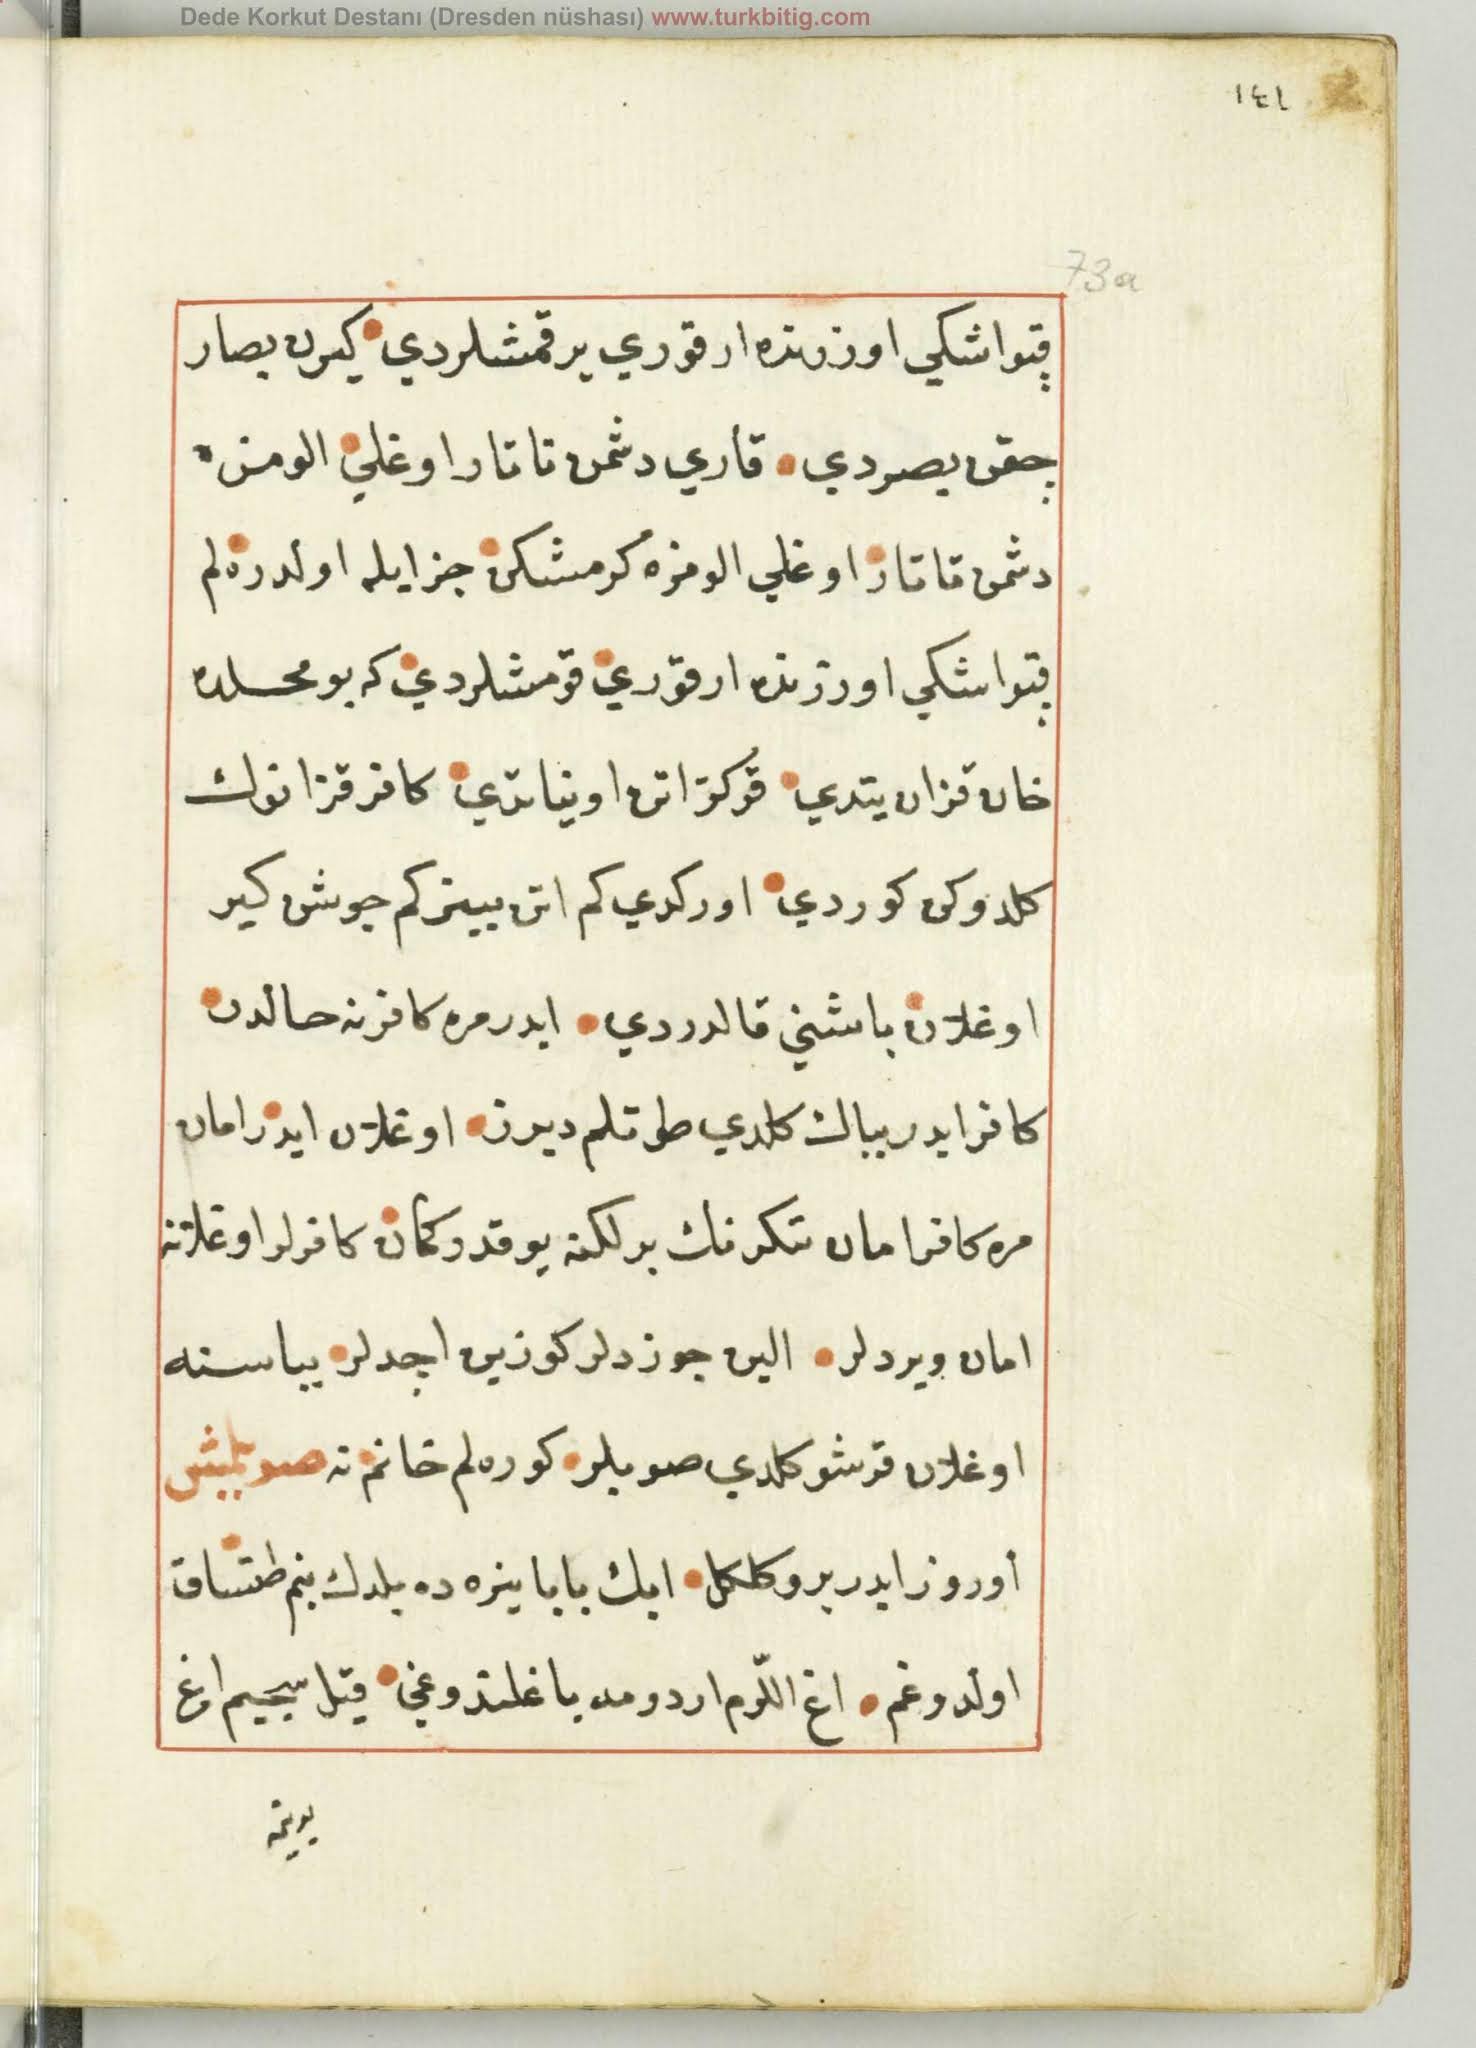 Dede Korkut Destanı (Dresden nüshası) www.turkbitig.com
١٤١
73a
قپوا شكي اوزرنده ارقوري برقمشلردي كيرن بصار
چقن بصردي قاري دشمن تاتار اوغلي الومز
دشمن تاتار اوغلي الومزه كرمشكن جزايله اولدره لم
قپوا شكي اورزنده ارقوري قومشلردي كه بو محلده
خان قزان يتدي قوڭر اتن اويناتدي كافر قزانوك
كلدوكن كوردي اوركدي كم اتن بينر كم جوشن كير
اوغلان باشني قالدردي ايدر مره كافر نه حالدن
كافر ايدر بباك كلدي طوتلم ديرز اوغلان ايدر امان
مره كافر امان تنكرنك برلكنه يوقدر كمان كافرلر اوغلانه
امان ويردلر الين چوزدلر كوزين اچدلر بباسنه
اوغلان قرشو كلدي صويلر كوره لم خانم نه صويلمش
أوروز ايدر برو كلكل ابك بابا ينره ده بلدك بنم طتساق
اولدوغم اغ اللرم اردومه باغلندوغي قيل سيجيم اغ
بوينمه